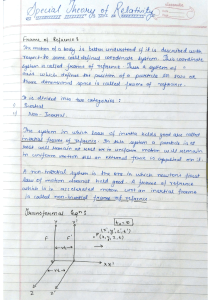 Special Theory of Relativity
Frame of Reference :
The motion of a body is better understood if it is described with
respect to some well defined coordinate system. This coordinate
system is called frame of reference. Thus a system of
axis which defines the position of a particle in two or
three dimensional space is called frame of reference.
It is divided into two categories :
Inertial
Non - Inertial.
The system in which laws of inertia holds good are called
inertial frame of reference. In this system a particle is at
rest will remain at rest or in uniform motion will remain
in uniform motion until an external force is applied on it.
A non-inertial system is the one in which newton's first
law of motion doesnot hold good. A frame of reference
which is in accelerated motion wrt an inertial frame
is called non-inertial frame of reference.
Transformation Eqns :
(x',y',z',t')
(x,y,z,t)
F
F'
X X'
Z
Z'